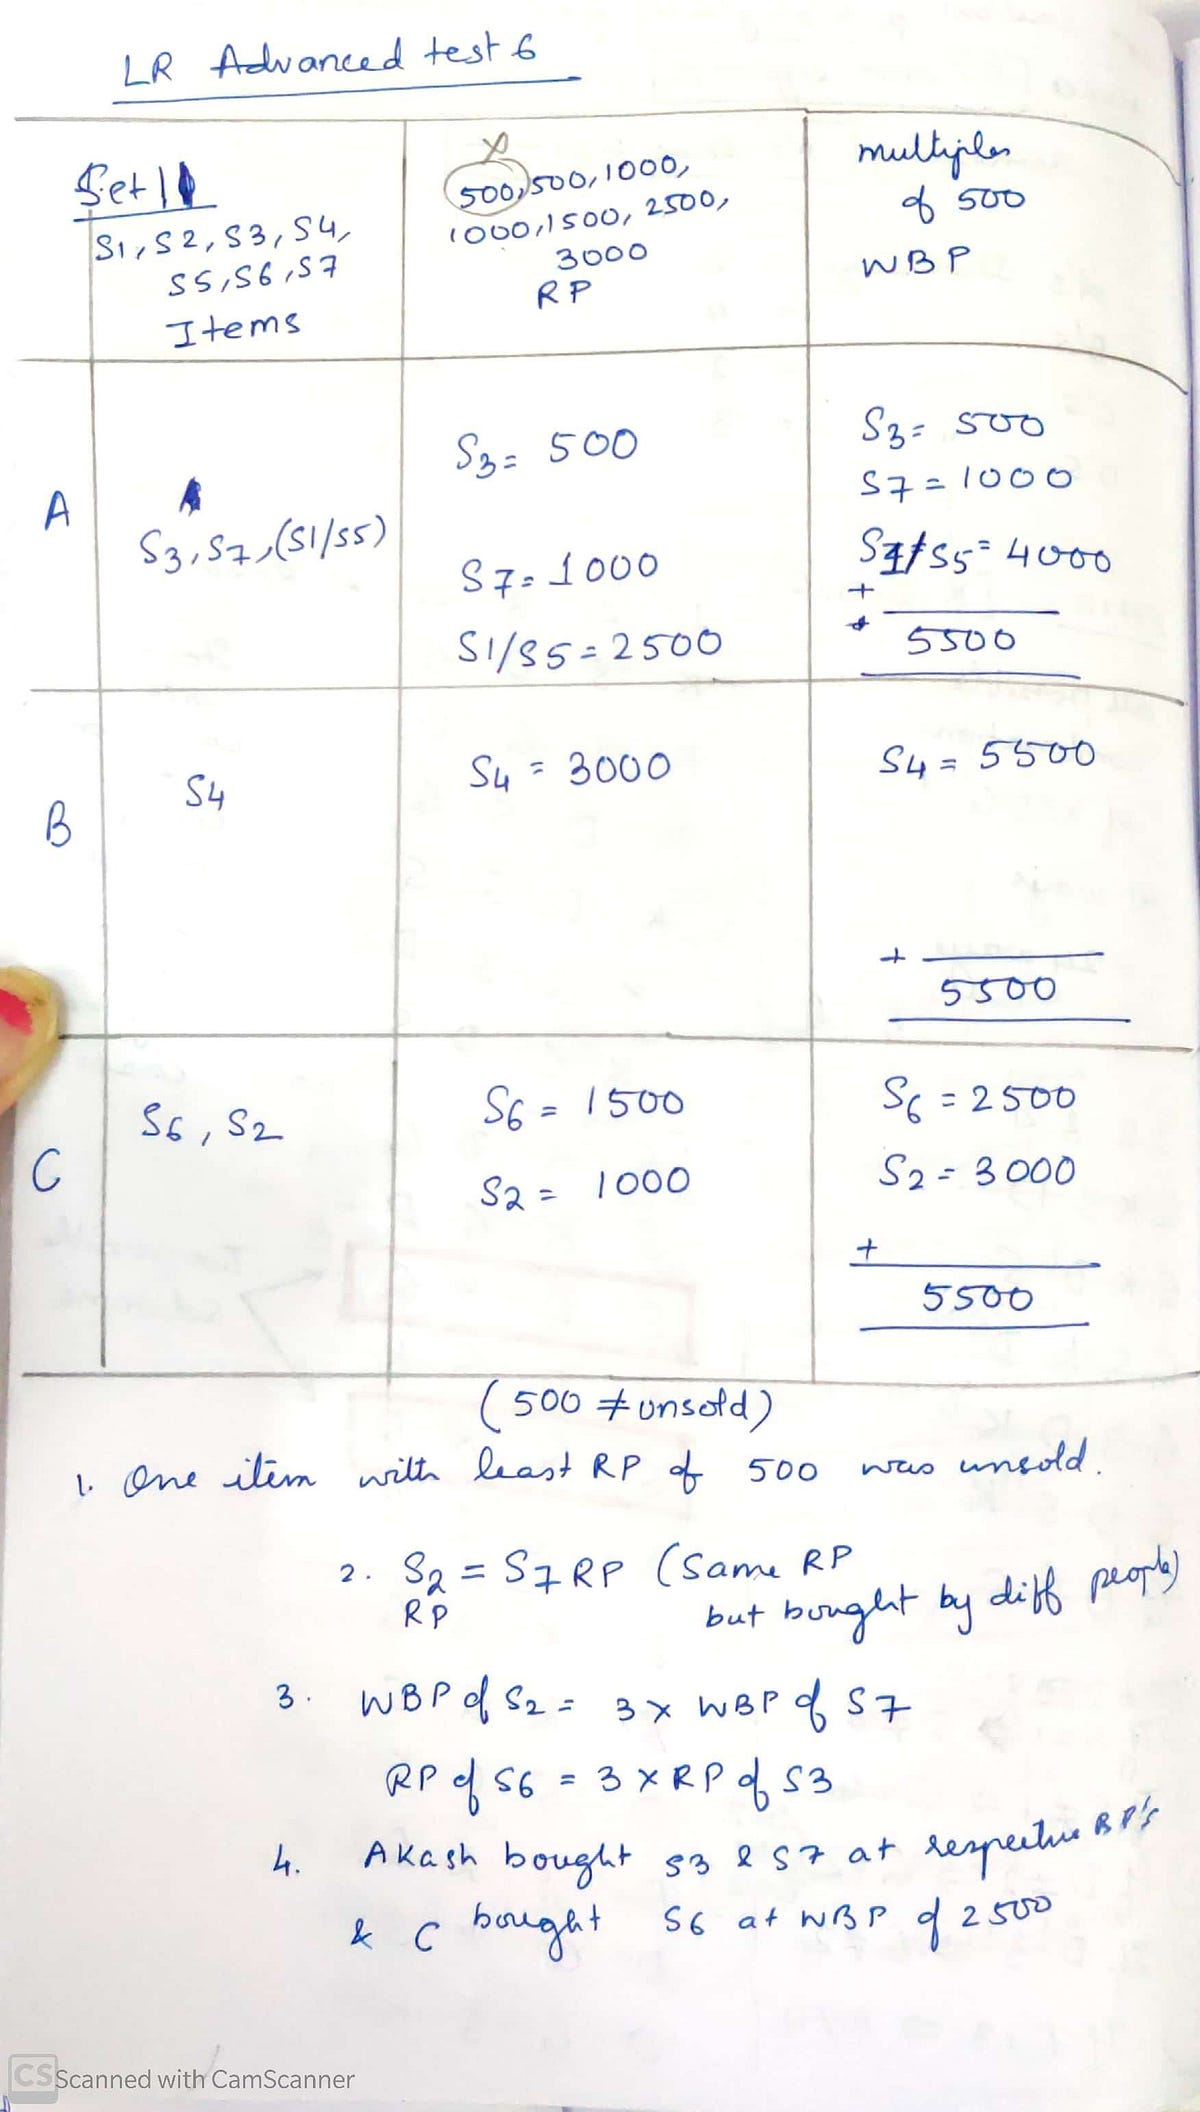 LR Advanced test 6
Set 1
S1, S2, S3, S4,
S5, S6, S7
Items
500, 500, 1000,
1000, 1500, 2500,
3000
RP
multiples
of 500
WBP
A
S3, S7, (S1/S5)
S3 = 500
S7 = 1000
S1/S5 = 2500
S3 = 500
S7 = 1000
S1/S5 = 4000
+
5500
B
S4
S4 = 3000
S4 = 5500
+
5500
C
S6, S2
S6 = 1500
S2 = 1000
S6 = 2500
S2 = 3000
+
5500
(500 ≠ unsold)
1. One item with least RP of 500 was unsold.
2. S2 = S7 RP (Same RP
RP but bought by diff people)
3. WBP of S2 = 3 x WBP of S7
RP of S6 = 3 x RP of S3
4. Akash bought S3 & S7 at respective BP's
& C bought S6 at WBP of 2500
CS Scanned with CamScanner